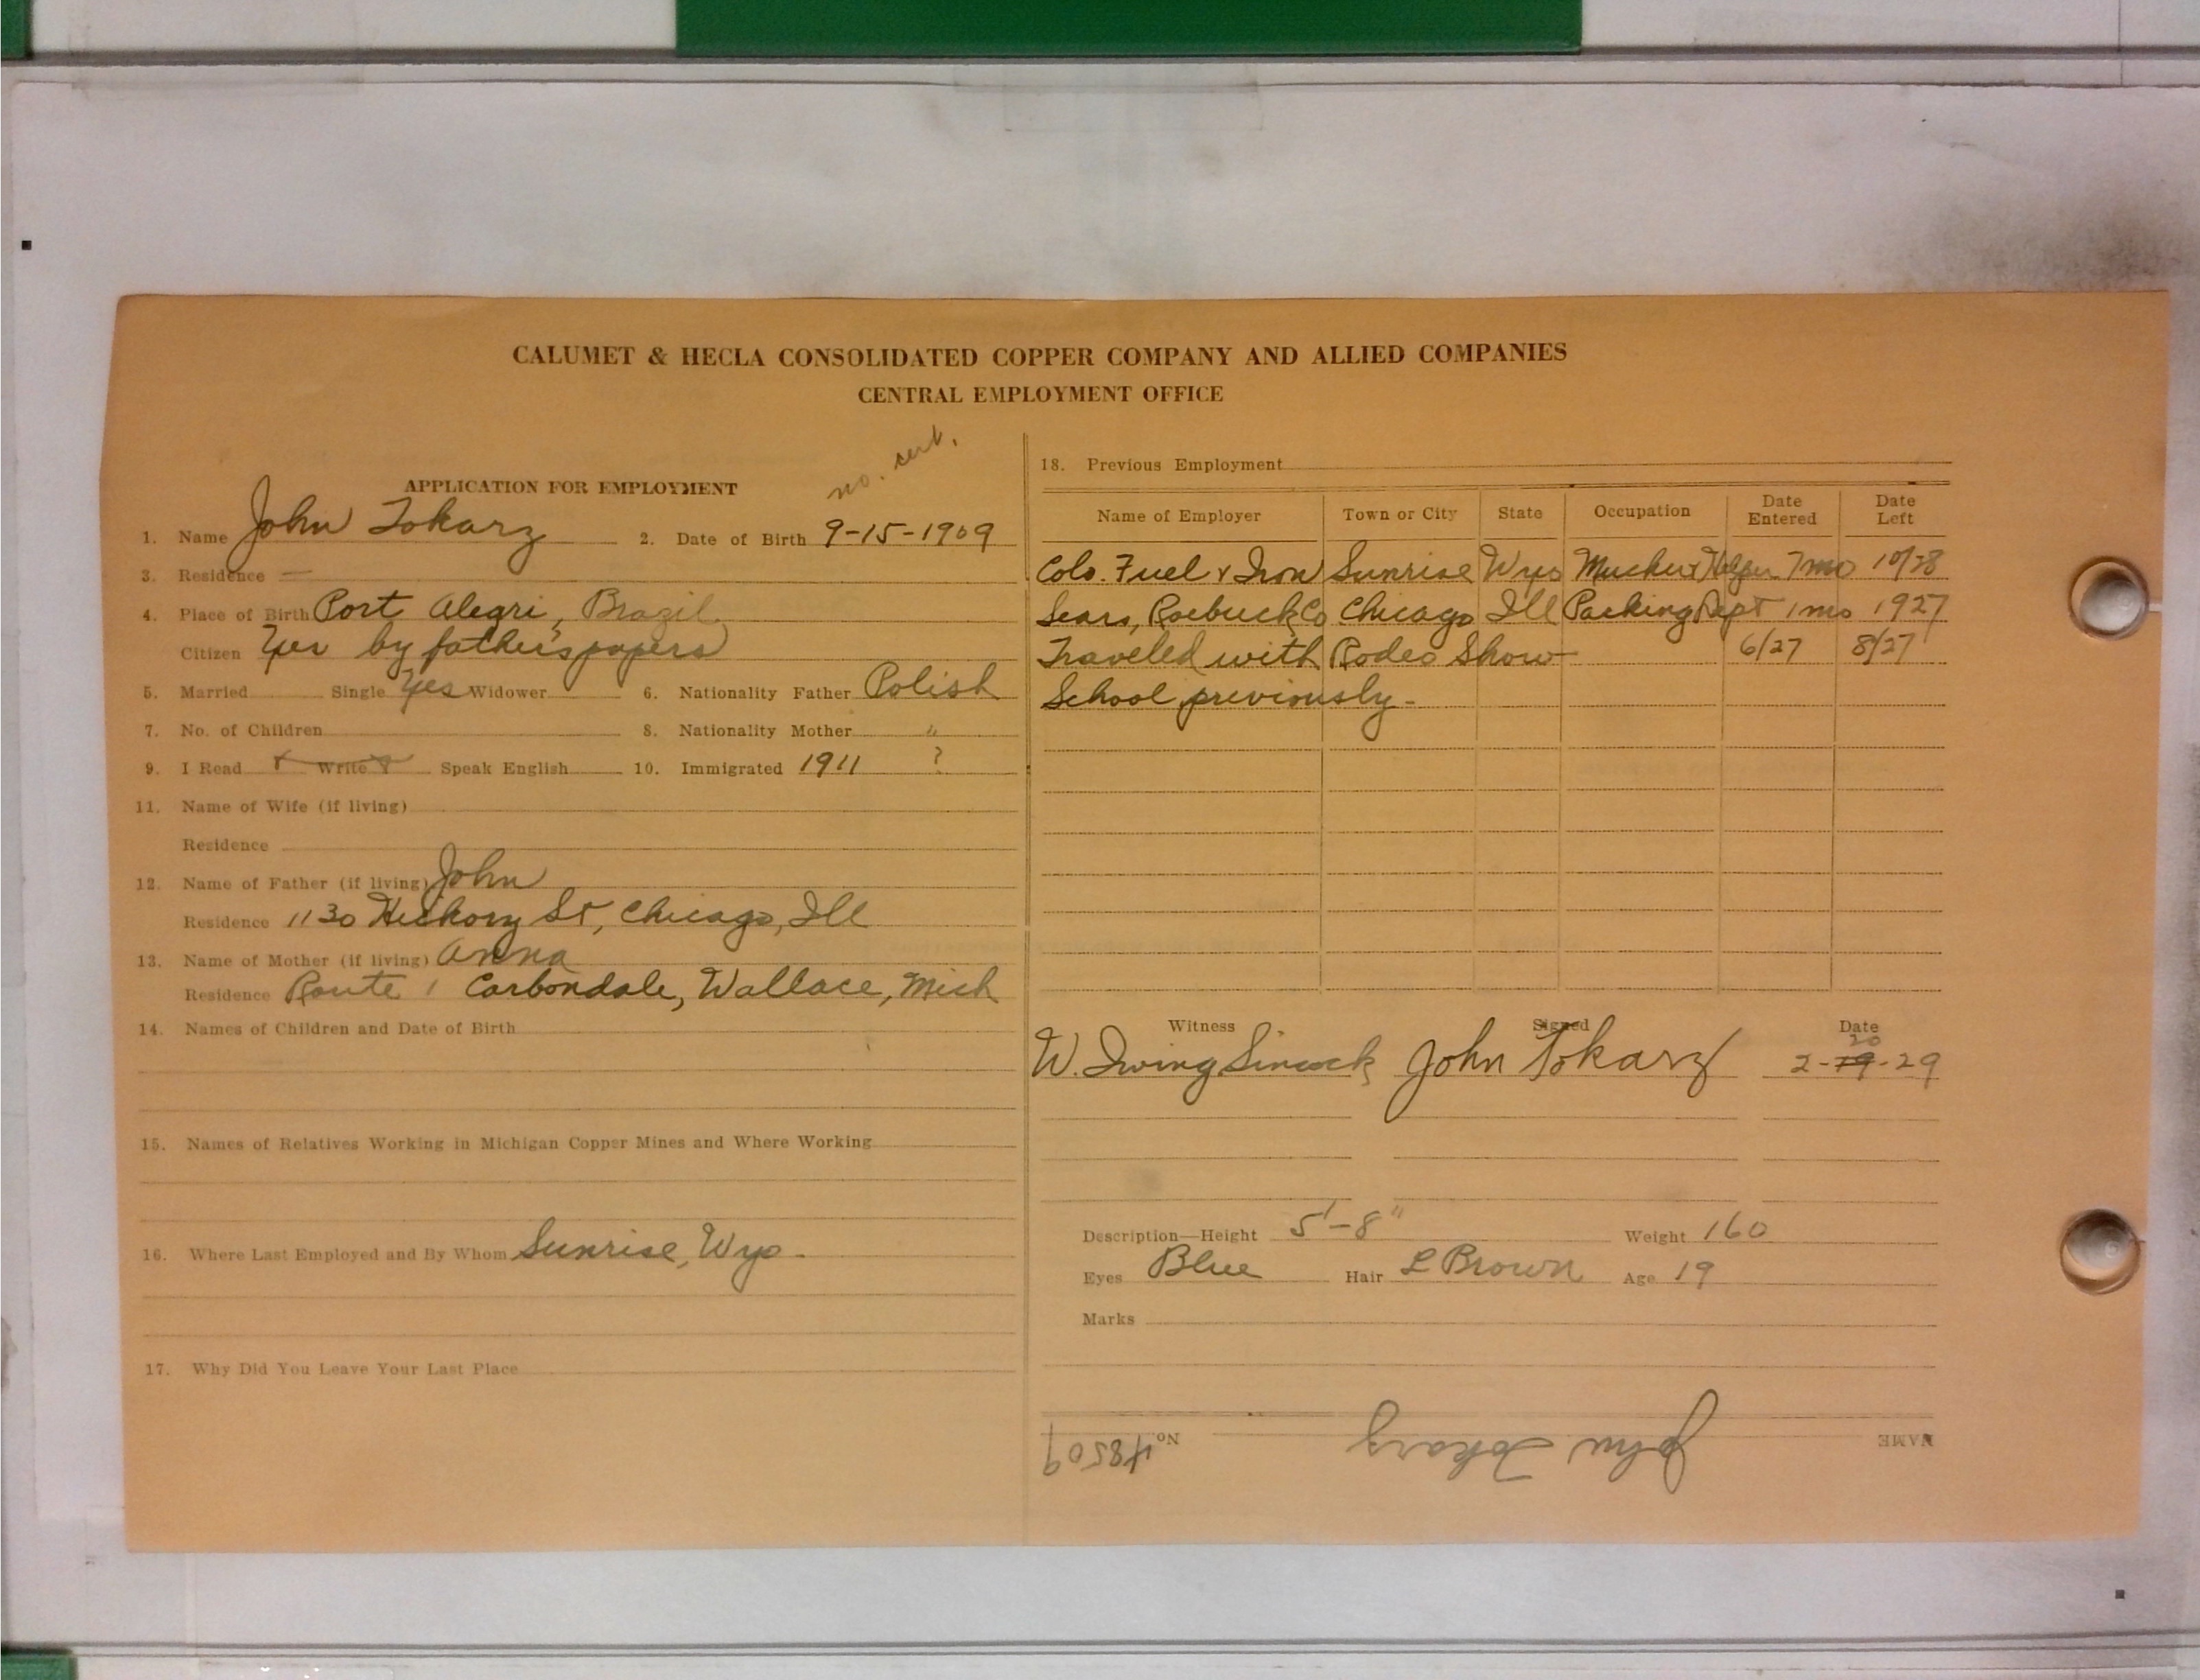 CALUMET & HECLA CONSOLIDATED COPPER COMPANY AND ALLIED COMPANIES
CENTRAL EMPLOYMENT OFFICE
no. cert.
APPLICATION FOR EMPLOYMENT
1. Name John Tokarz 2. Date of Birth 9-15-1909
3. Residence —
4. Place of Birth Port Alegri, Brazil
Citizen Yes by father's papers
5. Married Single Yes Widower 6. Nationality Father Polish
7. No. of Children 8. Nationality Mother "
9. I Read Write Speak English 10. Immigrated 1911 ?
11. Name of Wife (if living)
Residence
12. Name of Father (if living) John
Residence 1130 Hickory St, Chicago, Ill
13. Name of Mother (if living) Anna
Residence Route 1 Carbondale, Wallace, Mich
14. Names of Children and Date of Birth
15. Names of Relatives Working in Michigan Copper Mines and Where Working
16. Where Last Employed and By Whom Sunrise, Wyo.
17. Why Did You Leave Your Last Place
18. Previous Employment
Name of Employer Town or City State Occupation Date Entered Date Left
Colo. Fuel & Iron Sunrise Wyo Mucker & Helper 7 mo 10/28
Sears, Roebuck Co Chicago Ill Packing Dept 1 mo 1927
Traveled with Rodeo Show 6/27 8/27
School previously.
Witness Signed Date
20
W. Irving Sincock John Tokarz 2-19-29
Description—Height 5'-8" Weight 160
Eyes Blue Hair L Brown Age 19
Marks
NAME John Tokarz No. 48509